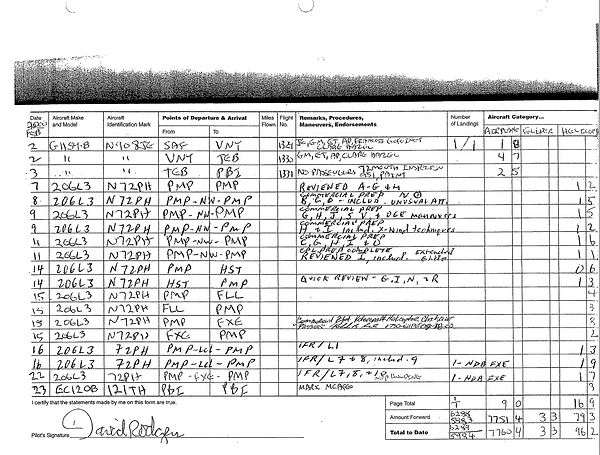 Date 2000 FEB
Aircraft Make and Model
Aircraft Identification Mark
Points of Departure & Arrival
From To
Miles Flown
Flight No.
Remarks, Procedures, Maneuvers, Endorsements
Number of Landings
Aircraft Category...
AIRPLANE GLIDER HELICOP
2 G1159B N908JE SAF VNY 1329 1/1 1 8
2 " " VNY TEB 1330 GM, ET, AP, 4 7
3 " " TEB PBI 1331 NO PASSENGERS 2 5
7 206L3 N72PH PMP PMP REVIEWED A-G & H 1 2
8 206L3 N72PH PMP-NW-PMP COMMERCIAL PREP 1 5
9 206L3 N72PH PMP-NW-PMP COMMERCIAL PREP G, H, I, S, V & DGE MANEUVERS 1 5
9 206L3 N72PH PMP-NW-PMP COMMERCIAL PREP H & I, includ. X-Wind techniques 1 2
11 206L3 N72PH PMP-NW-PMP COMMERCIAL PREP C, G, H, I & O 1 6
11 206L3 N72PH PMP-NW-PMP CPL PREP COMPLETE REVIEWED 1 1
14 206L3 N72PH PMP HST 6
14 206L3 N72PH HST PMP QUICK REVIEW - G, I, N, & R 1 3
15 206L3 N72PH PMP FLL 4
15 206L3 N72PH FLL PMP
15 206L3 N72PH PMP FXE
15 206L3 N72PH FXE PMP
16 206L3 72PH PMP-Lcl-PMP IFR/L1 1 3
16 206L3 72PH PMP-Lcl-PMP IFR/L7 & 8, includ. 9 1-NDB FXE 1 9
22 206L3 72PH PMP-FXE-PMP IFR/L7, 8, & 1-NDA FXE 1 7
23 EC120B 121TH PBI PBI MARK 3
I certify that the statements made by me on this form are true.
Pilot's Signature David Rodgers
Page Total 1/1 9 0 16 9
Amount Forward 7751 4 3 3 79 3
Total to Date 7760 4 3 3 96 2